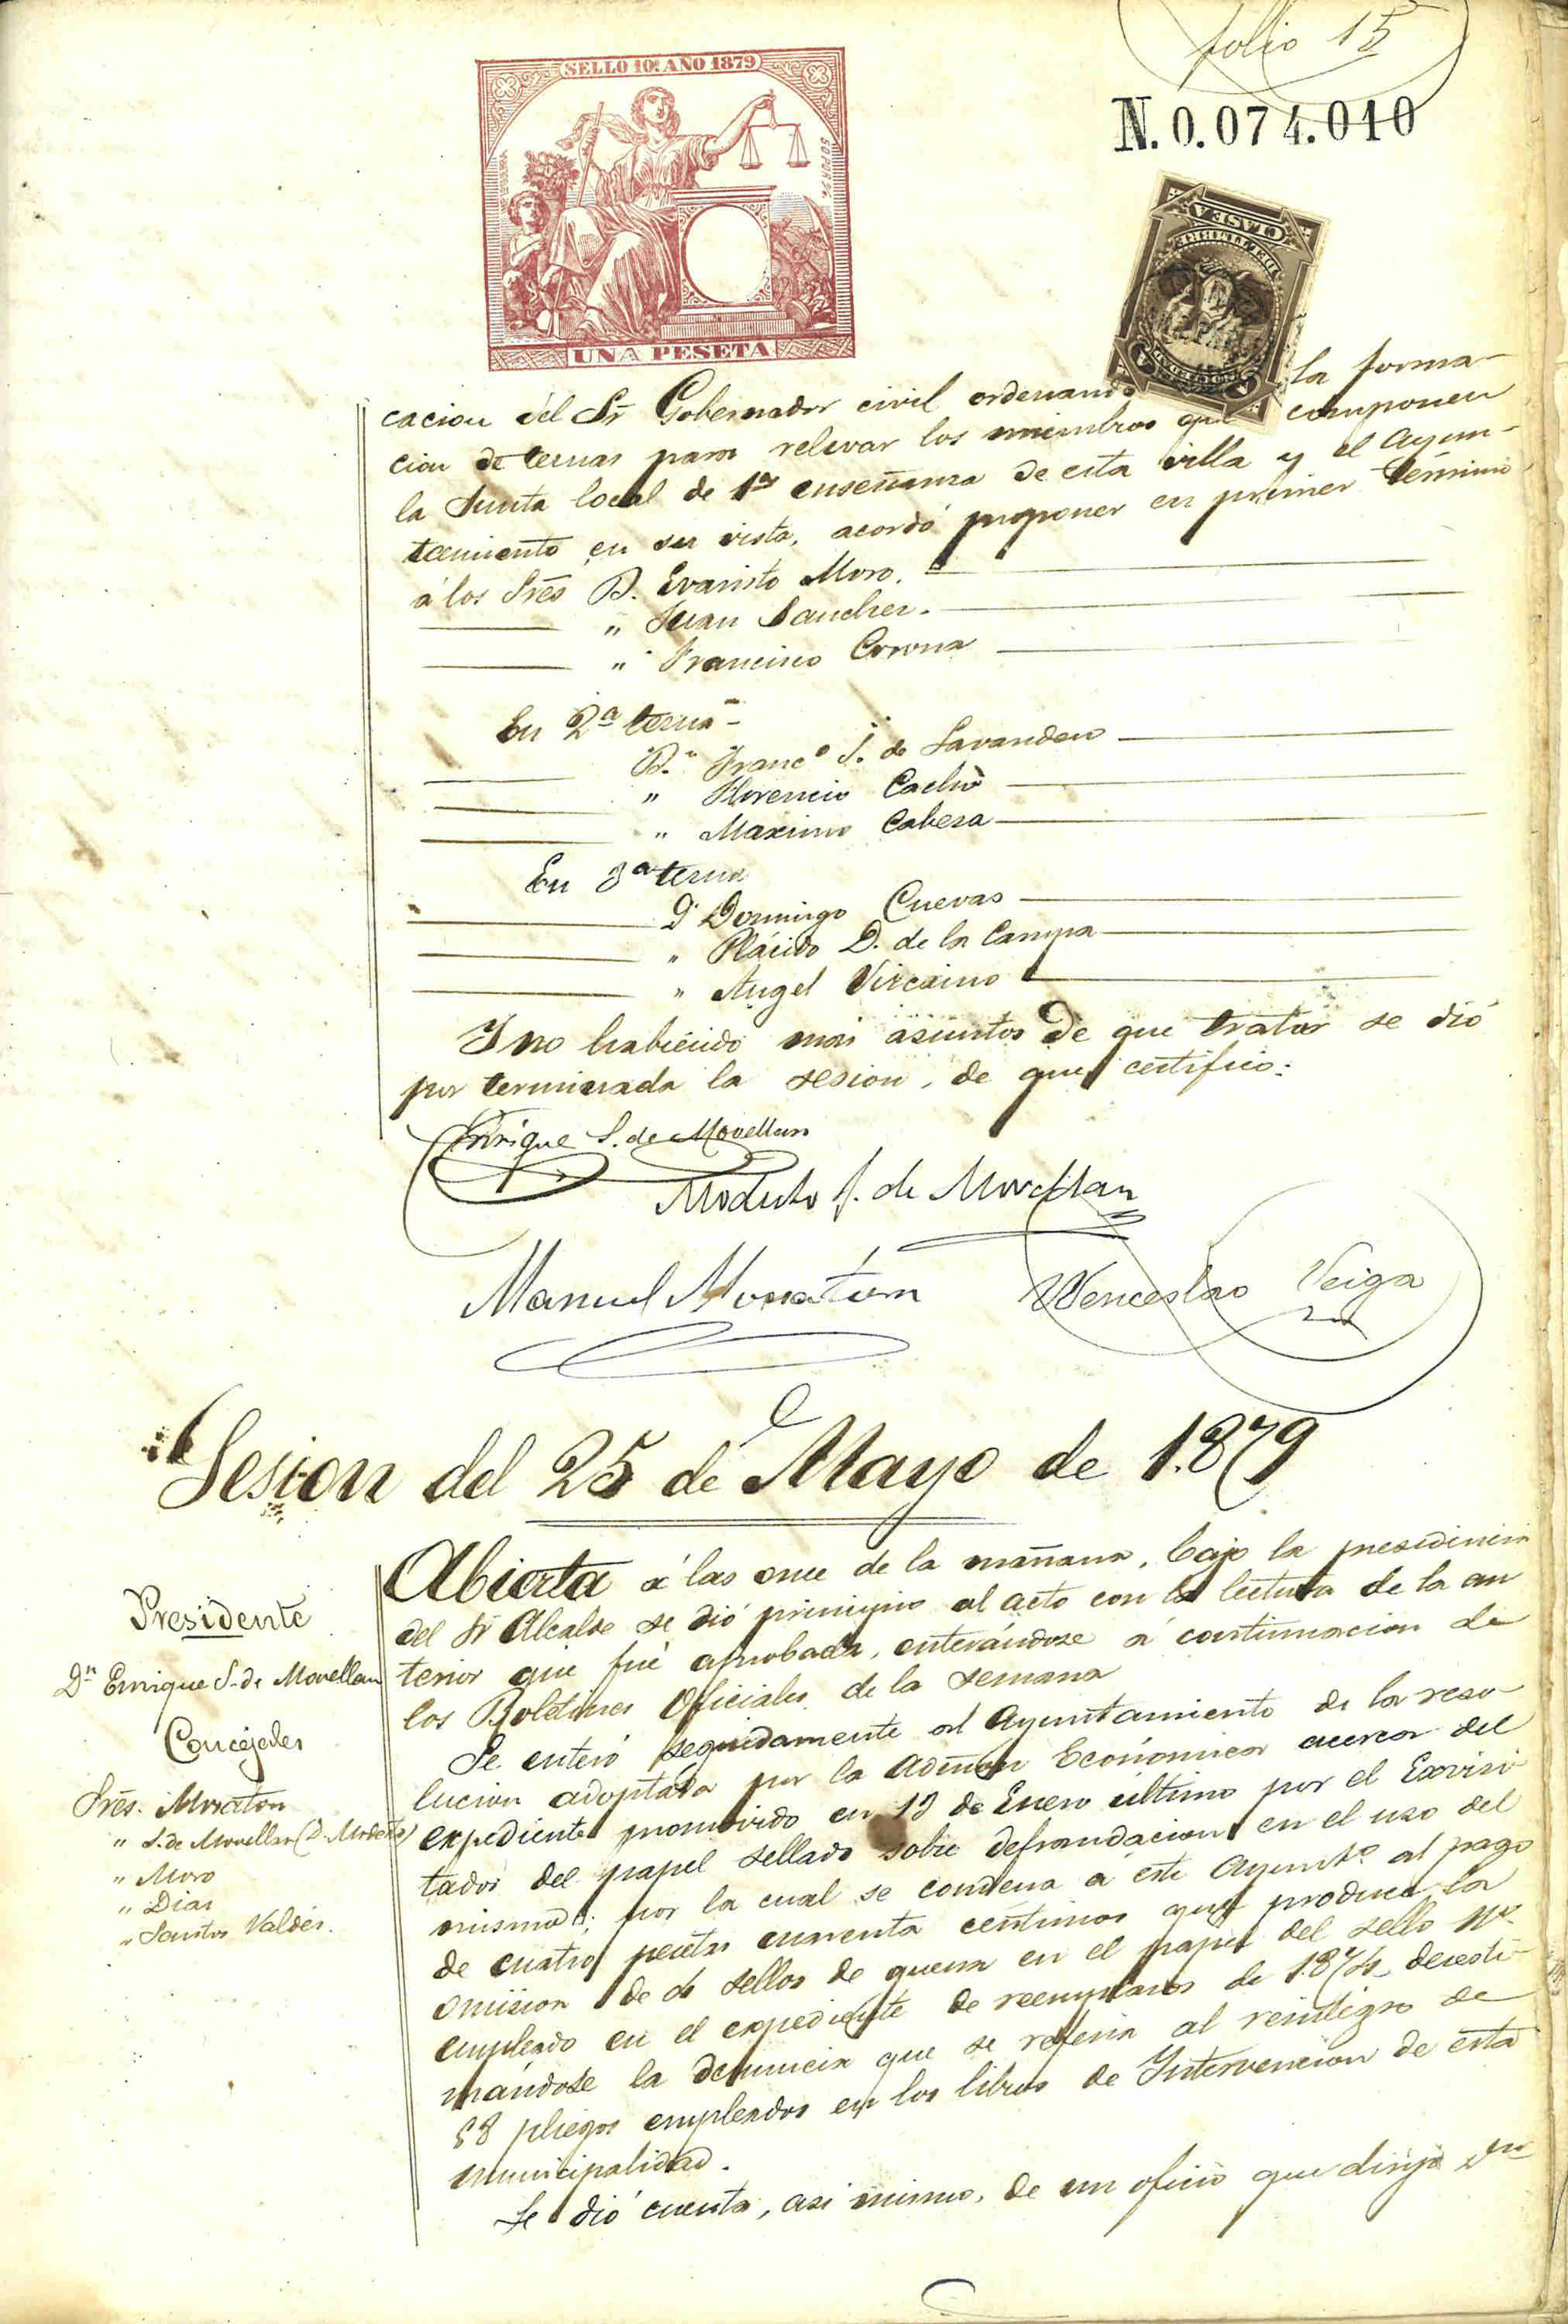 folio 15
SELLO 10º AÑO 1879
N.0.074.010
UNA PESETA
cacion del Sr Gobernador civil ordenando la forma-
cion de ternas para relevar los miembros que componen
la Junta local de 1ª enseñanza de esta villa y el Ayun-
tamiento en su vista, acordó proponer en primer término
á los Sres D. Evaristo Moro.
" Juan Sanchez.
" Francisco Corona
En 2ª terna-
D.n Franc.o S. de Lavandero
" Florencio Cacho
" Maximo Cabeza
En 3ª terna
D. Domingo Cuevas
" Plácido D. de la Campa
" Angel Vizcaino
Y no habiendo mas asuntos de que tratar se dió
por terminada la sesion, de que certifico:
Enrique S. de Movellan
Modesto S. de Movellan
Manuel Moraton Wenceslao Veiga
Sesion del 25 de Mayo de 1.879
Presidente
Dn Enrique S. de Movellan
Concejales
Sres. Moraton
" S. de Movellan (D. Modesto)
" Moro
" Dias
" Santos Valdés.
Abierta á las once de la mañana, bajo la presidencia
del Sr Alcalde se dió principio al acto con la lectura de la an
terior que fué aprobada, enterándose á continuacion de
los Boletines Oficiales de la semana
Se enteró seguidamente al Ayuntamiento de la reso-
lucion adoptada por la Admon Económica acerca del
expediente promovido en 13 de Enero último por el Exvisi
tador del papel sellado sobre defraudacion en el uso del
mismo; por la cual se condena a este Ayunto al pago
de cuatro pesetas cuarenta centimos que produce la
omision de sellos de guerra en el papel del sello
empleado en el expediente de reemplazos de 1.874, desesti-
mándose la denuncia que se referia al reintegro de
58 pliegos empleados en los libros de Intervencion de esta
municipalidad.
Se dió cuenta, asi mismo, de un oficio que dirije